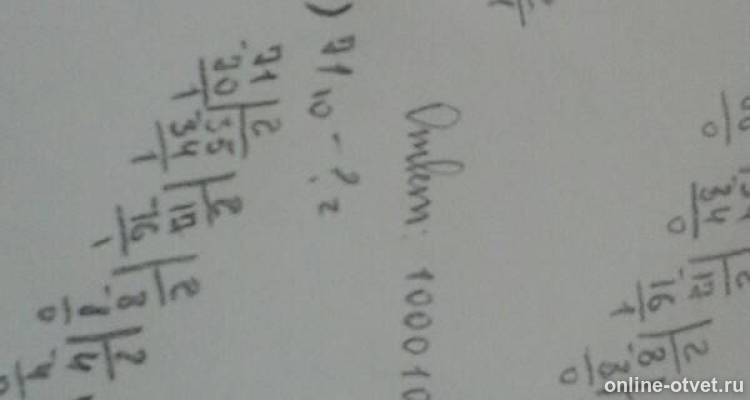 Ответ: 100010
) 71₁₀ - ?₂
71 | 2
-70 | 35 | 2
1 -34 | 17 | 2
1 -16 | 8 | 2
1 -8 | 4 | 2
0 -4
0
34
0
2
-17 | 2
16 | 8
1
0
online-otvet.ru